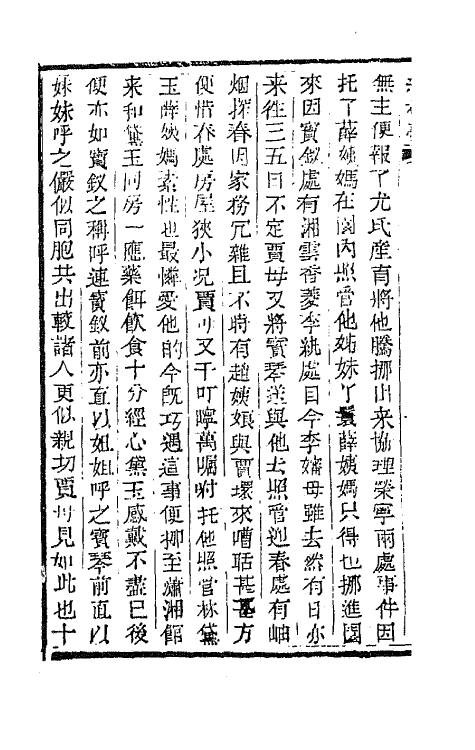 無主便報了尤氏産育將他騰挪出来協理榮寧兩處事件因
托了薛姨媽在園内照管他姊妹丫鬟薛姨媽只得也挪進園
來因寶釵處有湘雲香菱李紈處目今李嬸母雖去然有日亦
来徃三五日不定賈母又將寶琴送與他去照管迎春處有岫
烟探春因家務冗雜且不時有趙姨娘與賈環來嘈聒甚甚方
便惜春處房屋狹小况賈母又千叮嚀萬囑咐托他照管林黛
玉薛姨媽素性也最憐愛他的今既巧遇這事便挪至瀟湘館
来和黛玉同房一應藥餌飲食十分經心黛玉感戴不盡已後
便亦如寶釵之稱呼連寶釵前亦直以姐姐呼之寶琴前直以
妹妹呼之儼似同胞共出較諸人更似親切賈母見如此也十